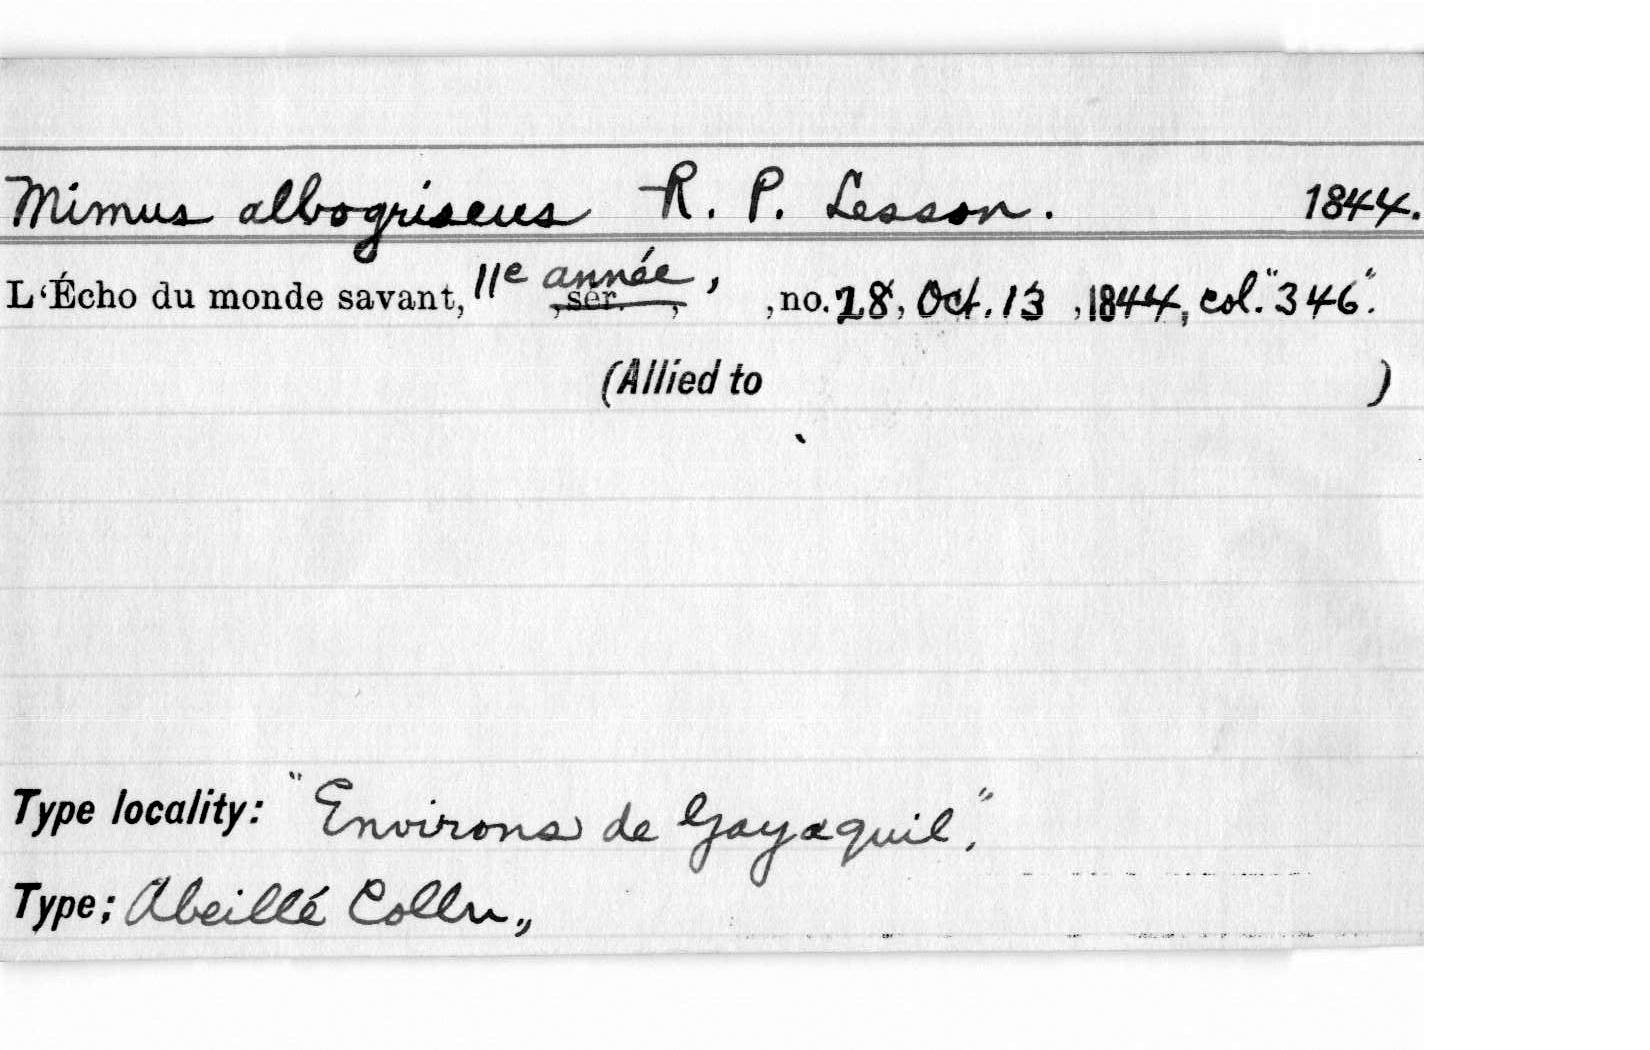 Mimus albogriseus R. P. Lesson. 1844.
L'Écho du monde savant, 11e année, , sér. , , no. 28, Oct. 13 , 1844, col. "346".
(Allied to )
Type locality: "Environs de Gayaquil",
Type; Abeillé Colln.,